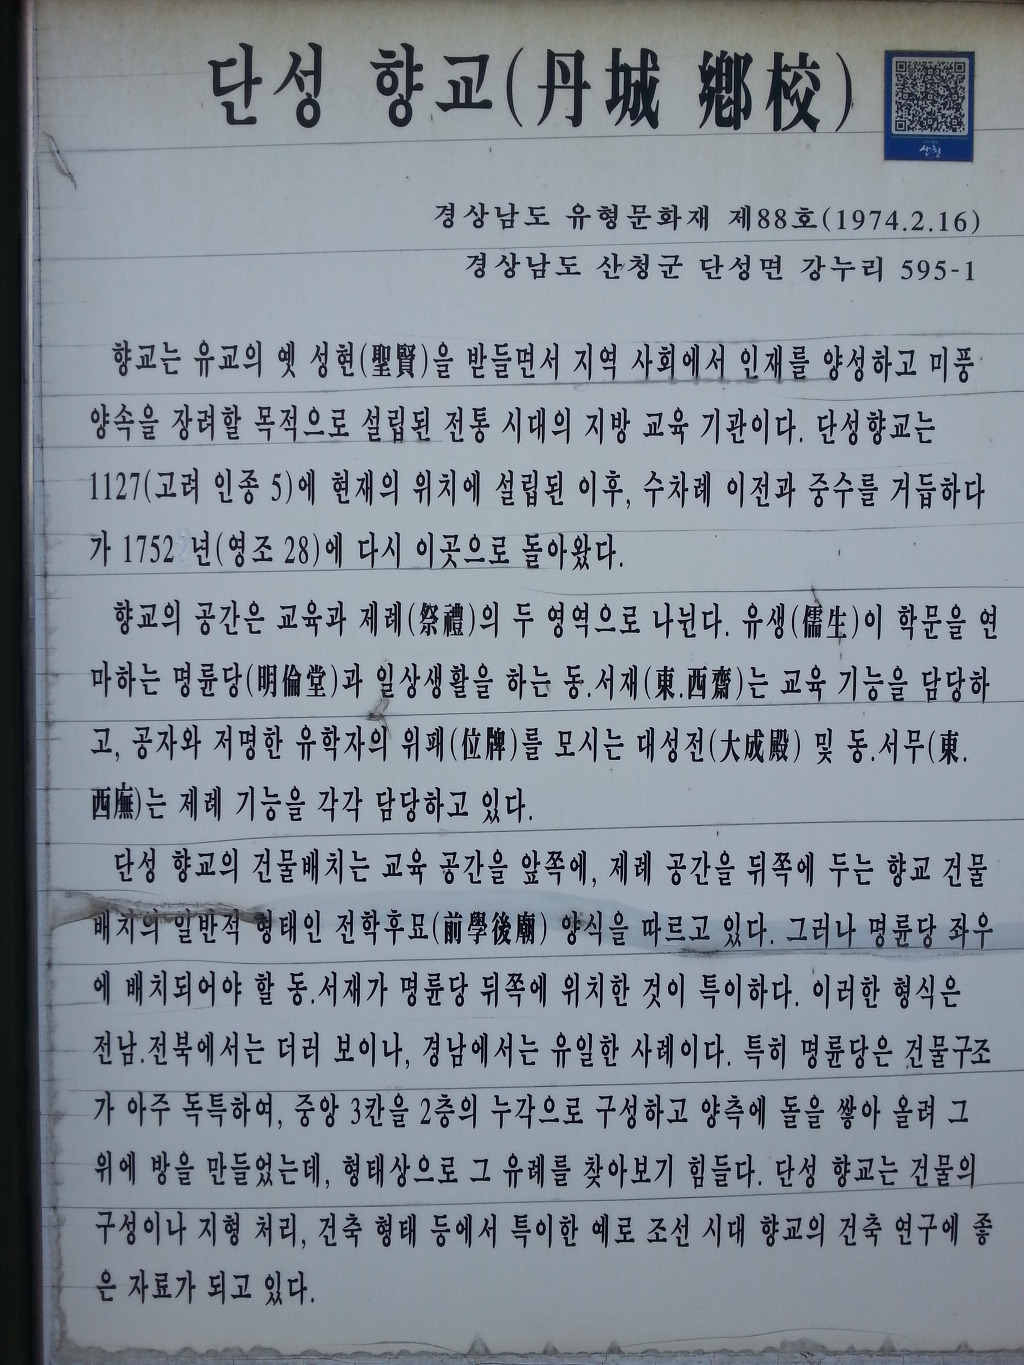 단성 향교(丹城 鄕校)
산청
경상남도 유형문화재 제88호(1974.2.16)
경상남도 산청군 단성면 강누리 595-1
향교는 유교의 옛 성현(聖賢)을 받들면서 지역 사회에서 인재를 양성하고 미풍
양속을 장려할 목적으로 설립된 전통 시대의 지방 교육 기관이다. 단성향교는
1127(고려 인종 5)에 현재의 위치에 설립된 이후, 수차례 이전과 중수를 거듭하다
가 1752 년(영조 28)에 다시 이곳으로 돌아왔다.
향교의 공간은 교육과 제례(祭禮)의 두 영역으로 나뉜다. 유생(儒生)이 학문을 연
마하는 명륜당(明倫堂)과 일상생활을 하는 동.서재(東.西齋)는 교육 기능을 담당하
고, 공자와 저명한 유학자의 위패(位牌)를 모시는 대성전(大成殿) 및 동.서무(東.
西廡)는 제례 기능을 각각 담당하고 있다.
단성 향교의 건물배치는 교육 공간을 앞쪽에, 제례 공간을 뒤쪽에 두는 향교 건물
배치의 일반적 형태인 전학후묘(前學後廟) 양식을 따르고 있다. 그러나 명륜당 좌우
에 배치되어야 할 동.서재가 명륜당 뒤쪽에 위치한 것이 특이하다. 이러한 형식은
전남.전북에서는 더러 보이나, 경남에서는 유일한 사례이다. 특히 명륜당은 건물구조
가 아주 독특하여, 중앙 3칸을 2층의 누각으로 구성하고 양측에 돌을 쌓아 올려 그
위에 방을 만들었는데, 형태상으로 그 유례를 찾아보기 힘들다. 단성 향교는 건물의
구성이나 지형 처리, 건축 형태 등에서 특이한 예로 조선 시대 향교의 건축 연구에 좋
은 자료가 되고 있다.